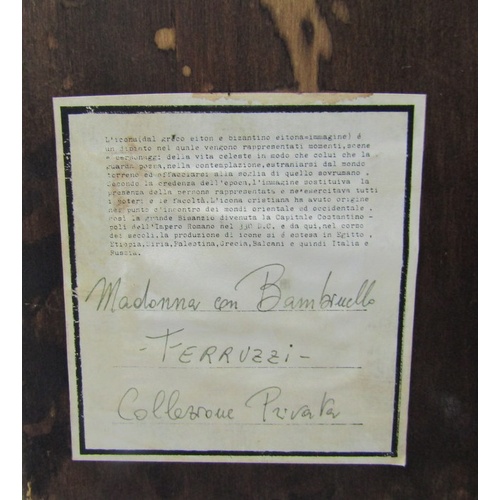 L'icona(dal greco eiton e bizantino eitona=immagine) è
un dipinto nel quale vengono rappresentati momenti,scene
e personaggi della vita celeste in modo che colui che la
guarda possa,nella contemplazione,estraniarsi dal mondo
terreno ed affacciarsi alla soglia di quello sovrumano.
Secondo la credenza dell'epoca,l'immagine sostituiva la
presenza della persona rappresentata e ne esercitava tutti
i poteri e le facoltà.L'icona cristiana ha avuto origine
nel punto d'incontro dei mondi orientale ed occidentale,
nella grande Bisanzio divenuta la Capitale Costantino-
poli dell'Impero Romano nel 330 D.C. e da qui,nel corso
dei secoli,la produzione di icone si è estesa in Egitto,
Etiopia,Siria,Palestina,Grecia,Balcani e quindi Italia e
Russia.
Madonna con Bambinello
-TERRUZZI-
Collezione Privata